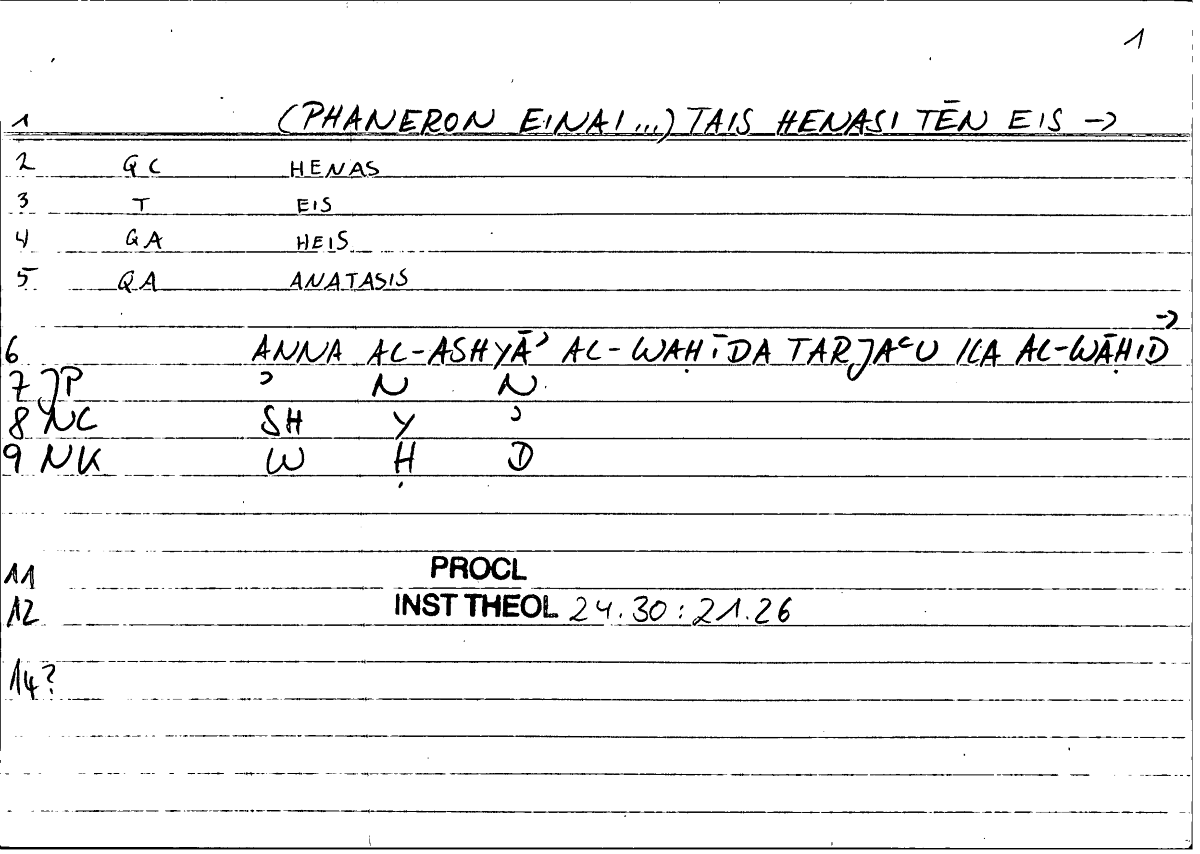 1
1 (PHANERON EINAI...) TAIS HENASI TĒN EIS →
2 GC HENAS
3 T EIS
4 GA HEIS
5 QA ANATASIS
→
6 ANNA AL-ASHYĀʾ AL-WAḤĪDA TARJAʿU ILA AL-WĀḤID
7 JP ʾ N N
8 NC SH Y ʾ
9 NK W Ḥ D
11 PROCL
12 INST THEOL 24.30:21.26
14?